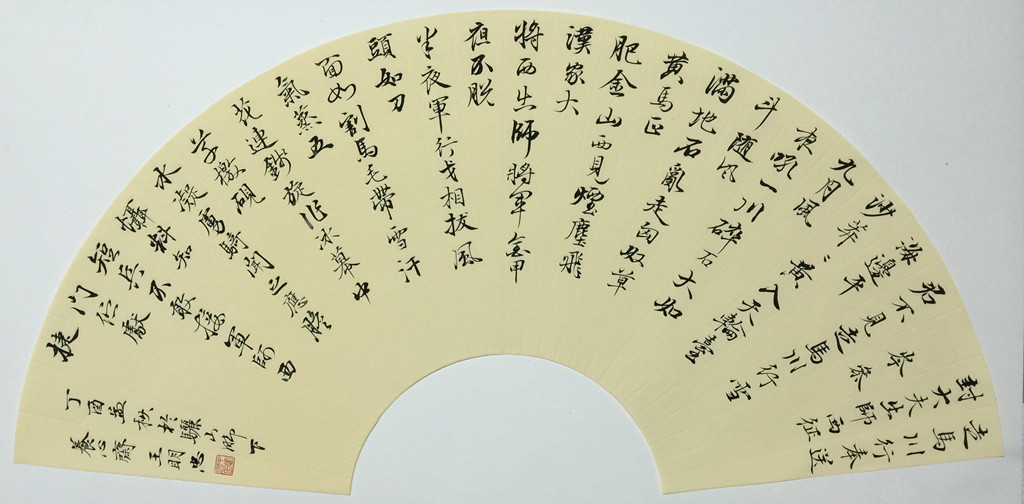 走馬川行奉送
封大夫出師西征
岑參
君不見走馬川行雪
海邊平
沙莽〻黃入天輪臺
九月風
夜吼一川碎石大如
斗隨風
滿地石亂走匈奴草
黃馬正
肥金山西見煙塵飛
漢家大
將西出師將軍金甲
夜不脫
半夜軍行戈相撥風
頭如刀
面如割馬毛帶雪汗
氣蒸五
花連錢旋作冰幕中
草檄硯
水凝虜騎聞之應膽
懾料知
短兵不敢接軍師西
門佇獻
捷
丁酉孟秋於驪山腳下
養心齋王明忠